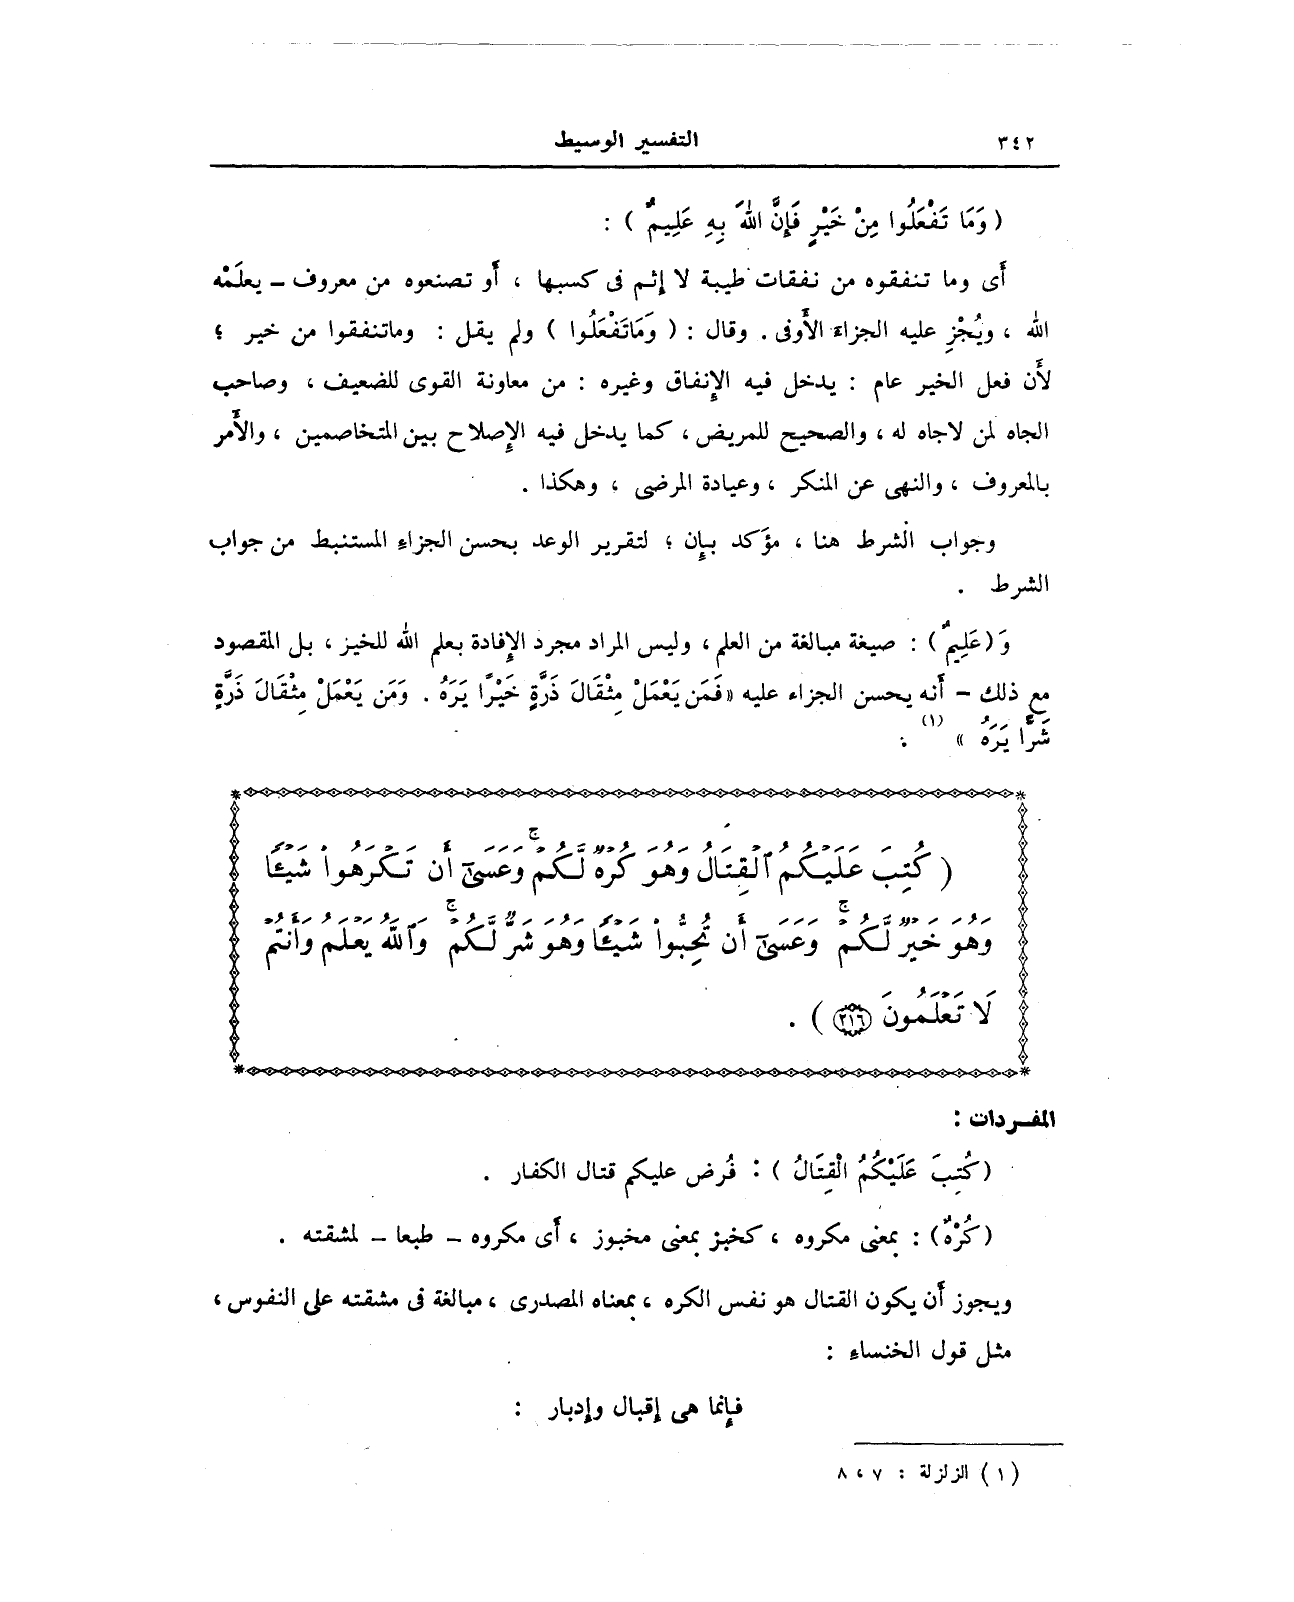 ٣٤٢ التفسير الوسيط
( وَمَا تَفْعَلُوا مِنْ خَيْرٍ فَإِنَّ اللهَ بِهِ عَلِيمٌ ) :
أَى وما تنفقوه من نفقات طيبة لا إثم فى كسبها ، أَو تصنعوه من معروف ــ يعلَمْه
الله ، ويُجْزِ عليه الجزاءَ الأَوفى . وقال : ( وَمَاتَفْعَلُوا ) ولم يقل : وماتنفقوا من خير ؛
لأَن فعل الخير عام : يدخل فيه الإنفاق وغيره : من معاونة القوى للضعيف ، وصاحب
الجاه لمن لاجاه له ، والصحيح للمريض ، كما يدخل فيه الإصلاح بين المتخاصمين ، والأَمر
بالمعروف ، والنهى عن المنكر ، وعيادة المرضى ، وهكذا .
وجواب الشرط هنا ، مؤَكد بإن ؛ لتقرير الوعد بحسن الجزاءِ المستنبط من جواب
الشرط .
وَ ( عَلِيمٌ ) : صيغة مبالغة من العلم ، وليس المراد مجرد الإفادة بعلم الله للخيز ، بل المقصود
مع ذلك – أَنه يحسن الجزاء عليه «فَمَن يَعْمَلْ مِثْقَالَ ذَرَّةٍ خَيْرًا يَرَهُ . وَمَن يَعْمَلْ مِثْقَالَ ذَرَّةٍ
شَرًّا يَرَهُ » (١) .
( كُتِبَ عَلَيْكُمُ ٱلْقِتَالُ وَهُوَ كُرْهٌ لَّكُمْ ۚ وَعَسَىٰٓ أَن تَكْرَهُوا۟ شَيْـًٔا
وَهُوَ خَيْرٌ لَّكُمْ ۚ وَعَسَىٰٓ أَن تُحِبُّوا۟ شَيْـًٔا وَهُوَ شَرٌّ لَّكُمْ ۚ وَٱللَّهُ يَعْلَمُ وَأَنتُمْ
لَا تَعْلَمُونَ ٢١٦ ) .
المفردات :
( كُتِبَ عَلَيْكُمُ الْقِتَالُ ) : فُرض عليكم قتال الكفار .
( كُرْهٌ ) : بمعنى مكروه ، كخبز بمعنى مخبوز ، أَى مكروه ــ طبعا ــ لمشقته .
ويجوز أَن يكون القتال هو نفس الكره ، بمعناه المصدرى ، مبالغة فى مشقته على النفوس ،
مثل قول الخنساءِ :
فإنما هى إقبال وإدبار :
( ١ ) الزلزلة : ٧ ، ٨